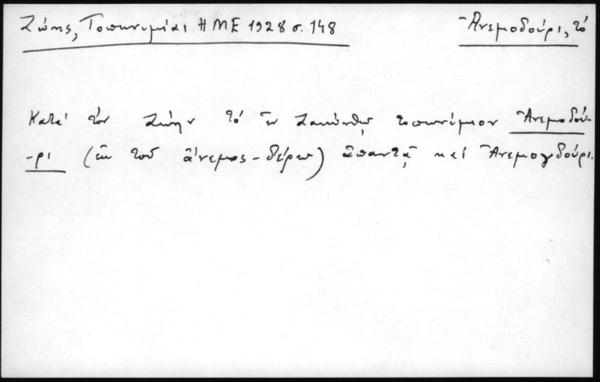 Ζώης, Τοπωνυμίαι ΗΜΕ 1928 σ. 148
Ἀνεμοδούρι, τό
Κατά τόν Ζώην τό ἐν Ζακύνθῳ τοπωνύμιον Ἀνεμοδού-
-ρι (ἐκ τοῦ ἄνεμος-δέρω) ἀπαντᾷ καί Ἀνεμογδούρι.